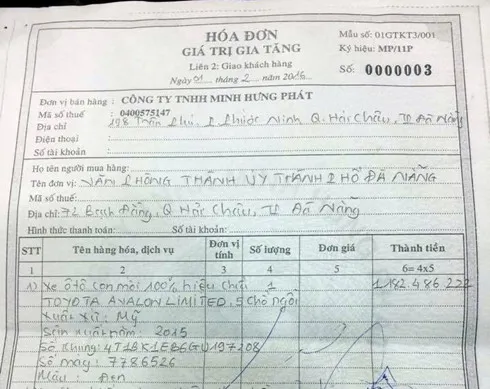 HÓA ĐƠN
GIÁ TRỊ GIA TĂNG
Liên 2: Giao khách hàng
Ngày 01 tháng 2 năm 2016
Mẫu số: 01GTKT3/001
Ký hiệu: MP/11P
Số: 0000003
Đơn vị bán hàng : CÔNG TY TNHH MINH HƯNG PHÁT
Mã số thuế : 0400575147
Địa chỉ : 198 Trần Phú, P Phước Ninh Q. Hải Châu, TP Đà Nẵng
Điện thoại :
Số tài khoản :
Họ tên người mua hàng:
Tên đơn vị: VĂN PHÒNG THÀNH ỦY THÀNH PHỐ ĐÀ NẴNG
Mã số thuế:
Địa chỉ: 72 Bạch Đằng, Q Hải Châu, TP Đà Nẵng
Hình thức thanh toán: Số tài khoản:
STT Tên hàng hóa, dịch vụ Đơn vị tính Số lượng Đơn giá Thành tiền
1 2 3 4 5 6= 4x5
1) Xe ôtô con mới 100% hiệu 1 1.182.486.222
TOYOTA AVALON LIMITED, 5 chỗ ngồi
Xuất xứ: Mỹ
Sản xuất năm: 2015
Số khung: 4T1BK1EB6GU197208
Số máy: 7786526
Màu: Đen